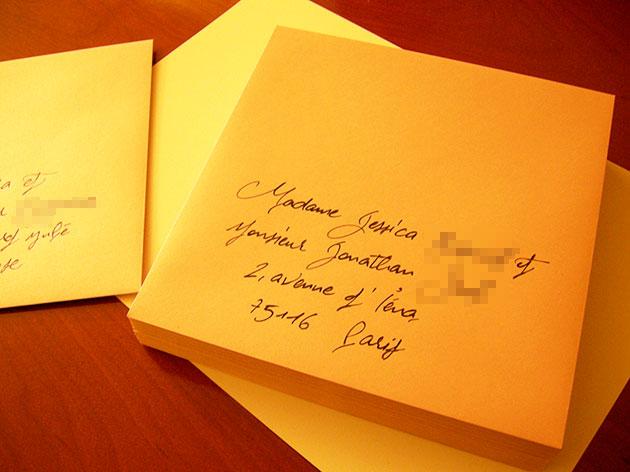 Madame Jessica et
Monsieur Jonathan
2, avenue d'Iéna
75116 Paris
a et